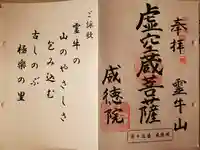 奉拝
霊牛山
虚空蔵菩薩
威徳院
ご詠歌
霊牛の
山のやさしさ
包み込む
古しのぶ
極楽の里